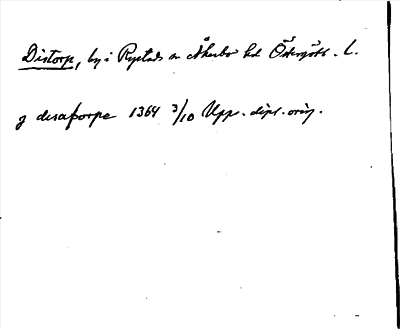 Distorp, by i Rystads sn Åkerbo hd Östergötl. L.
J disaþorpe 1364 3/10 Upps. dipl. orig.